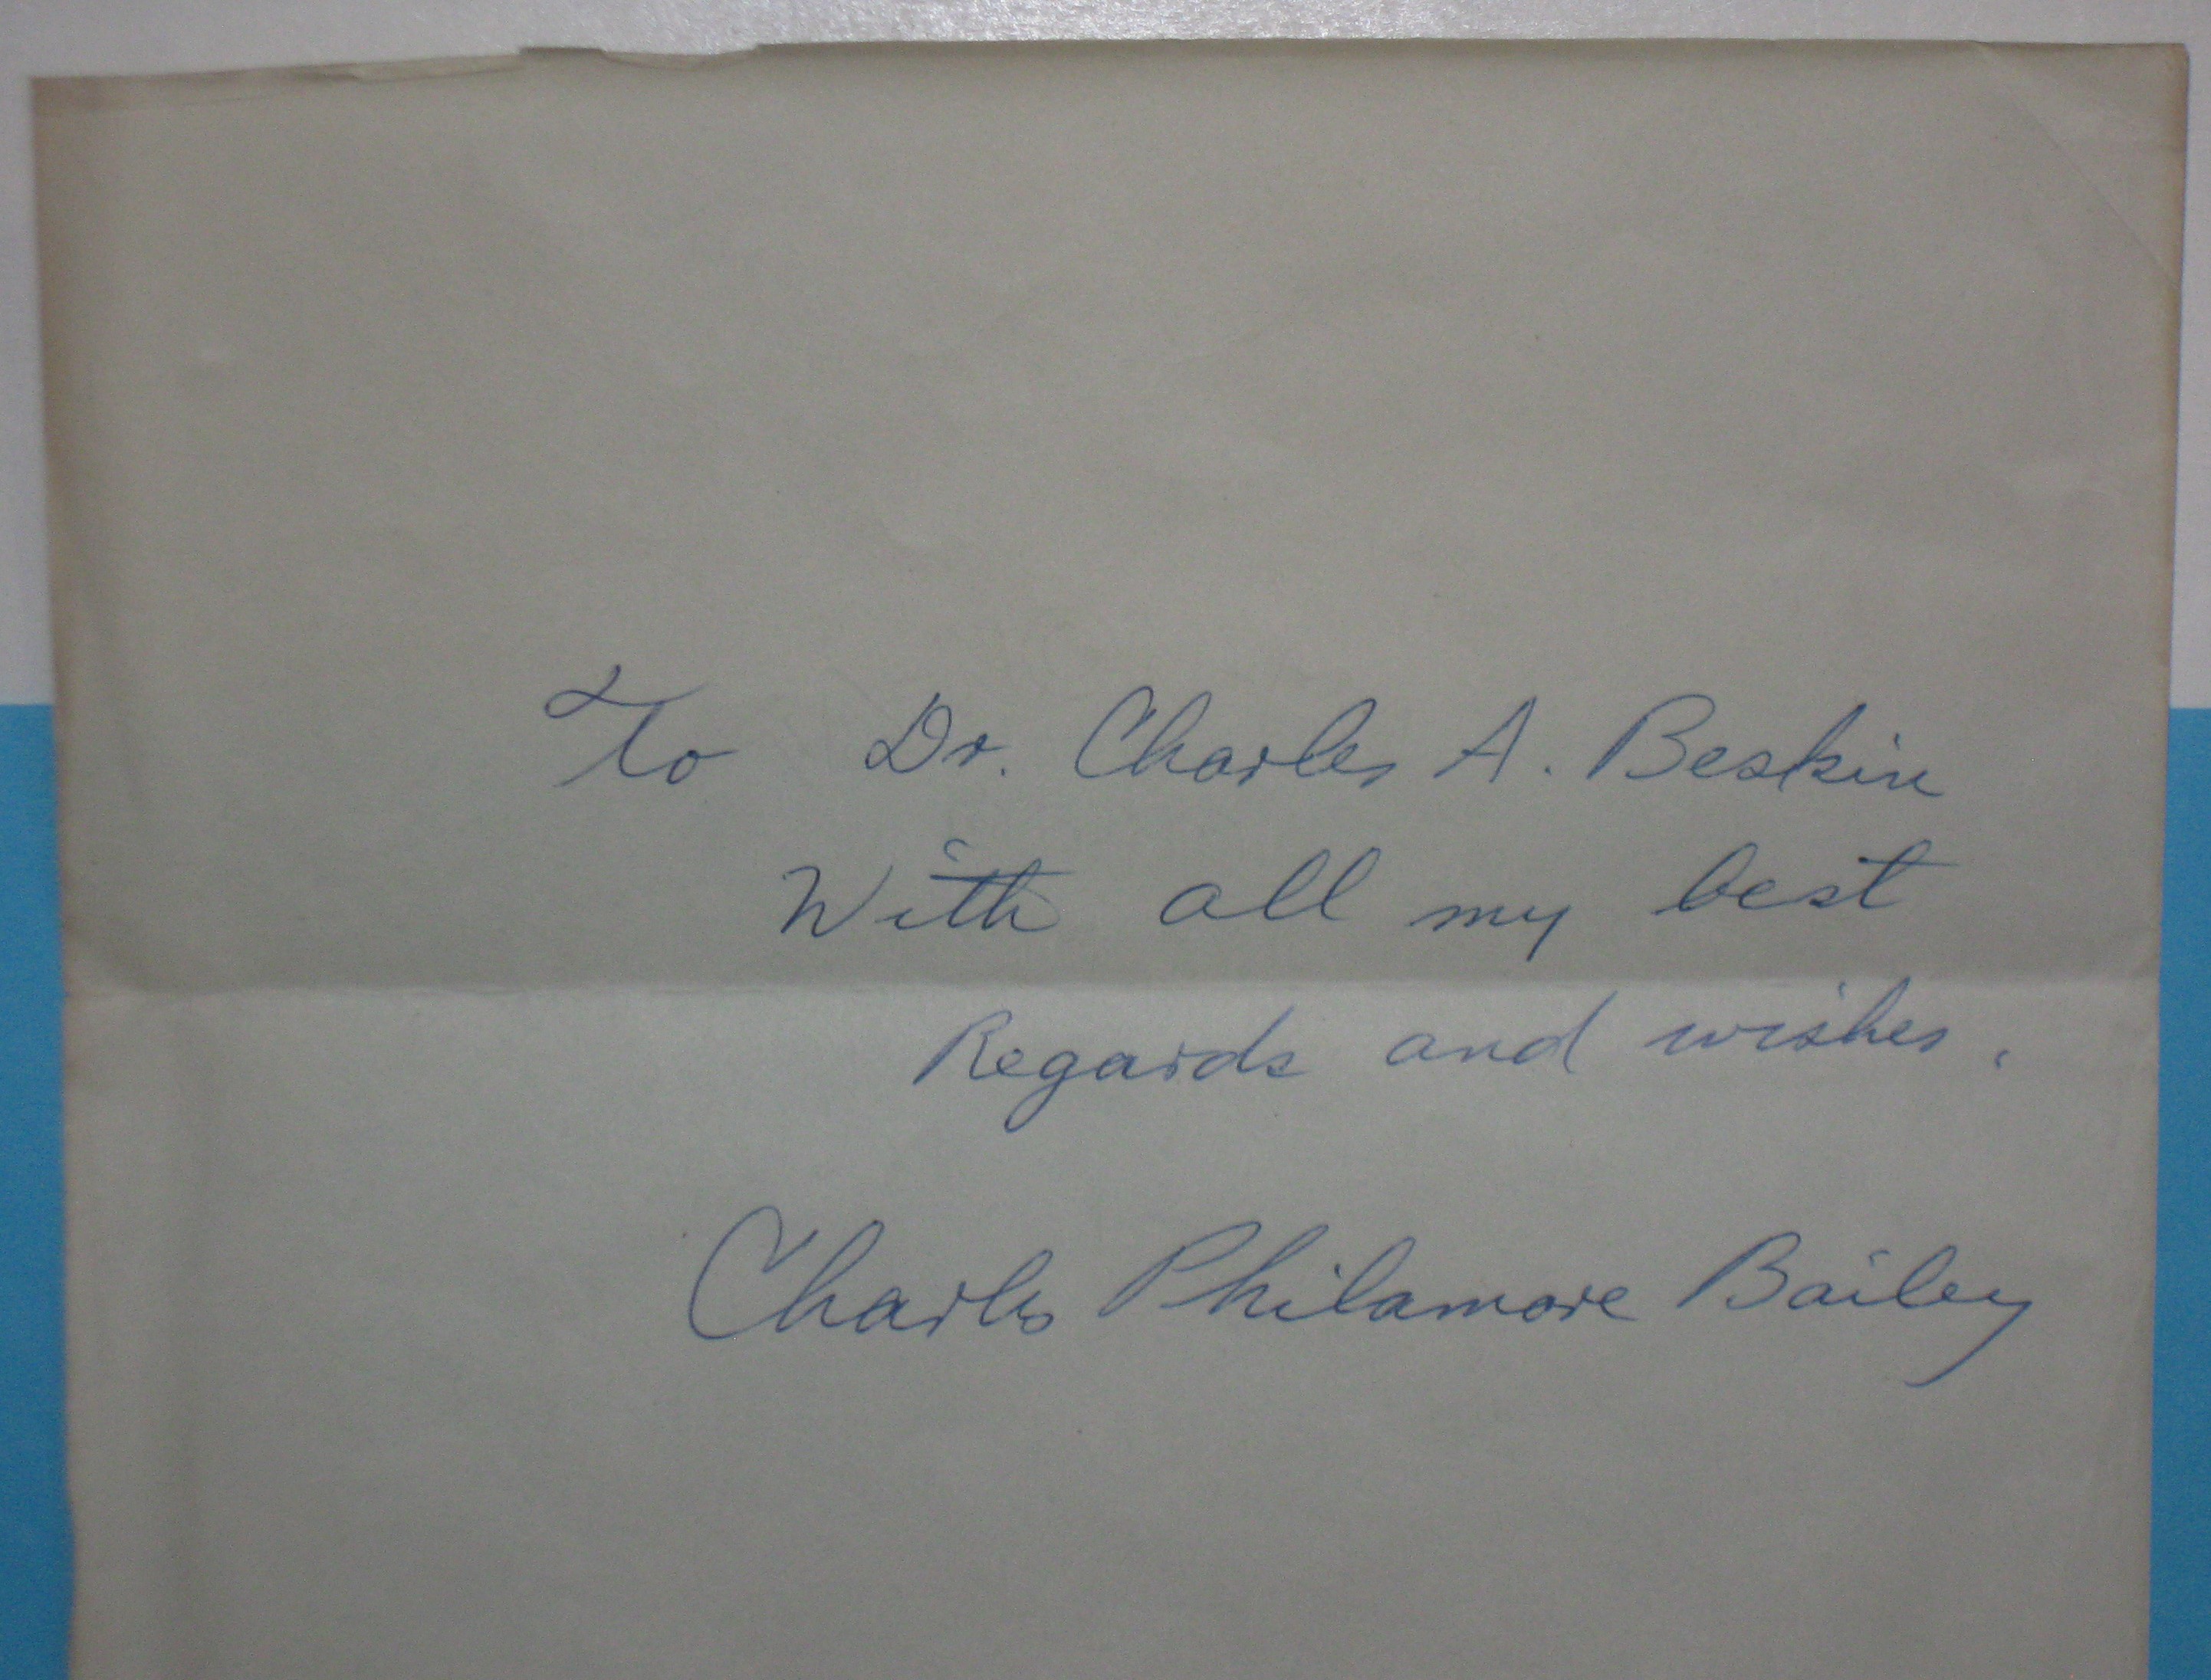 To Dr. Charles A. Beskin
With all my best
Regards and wishes.
Charles Philamore Bailey